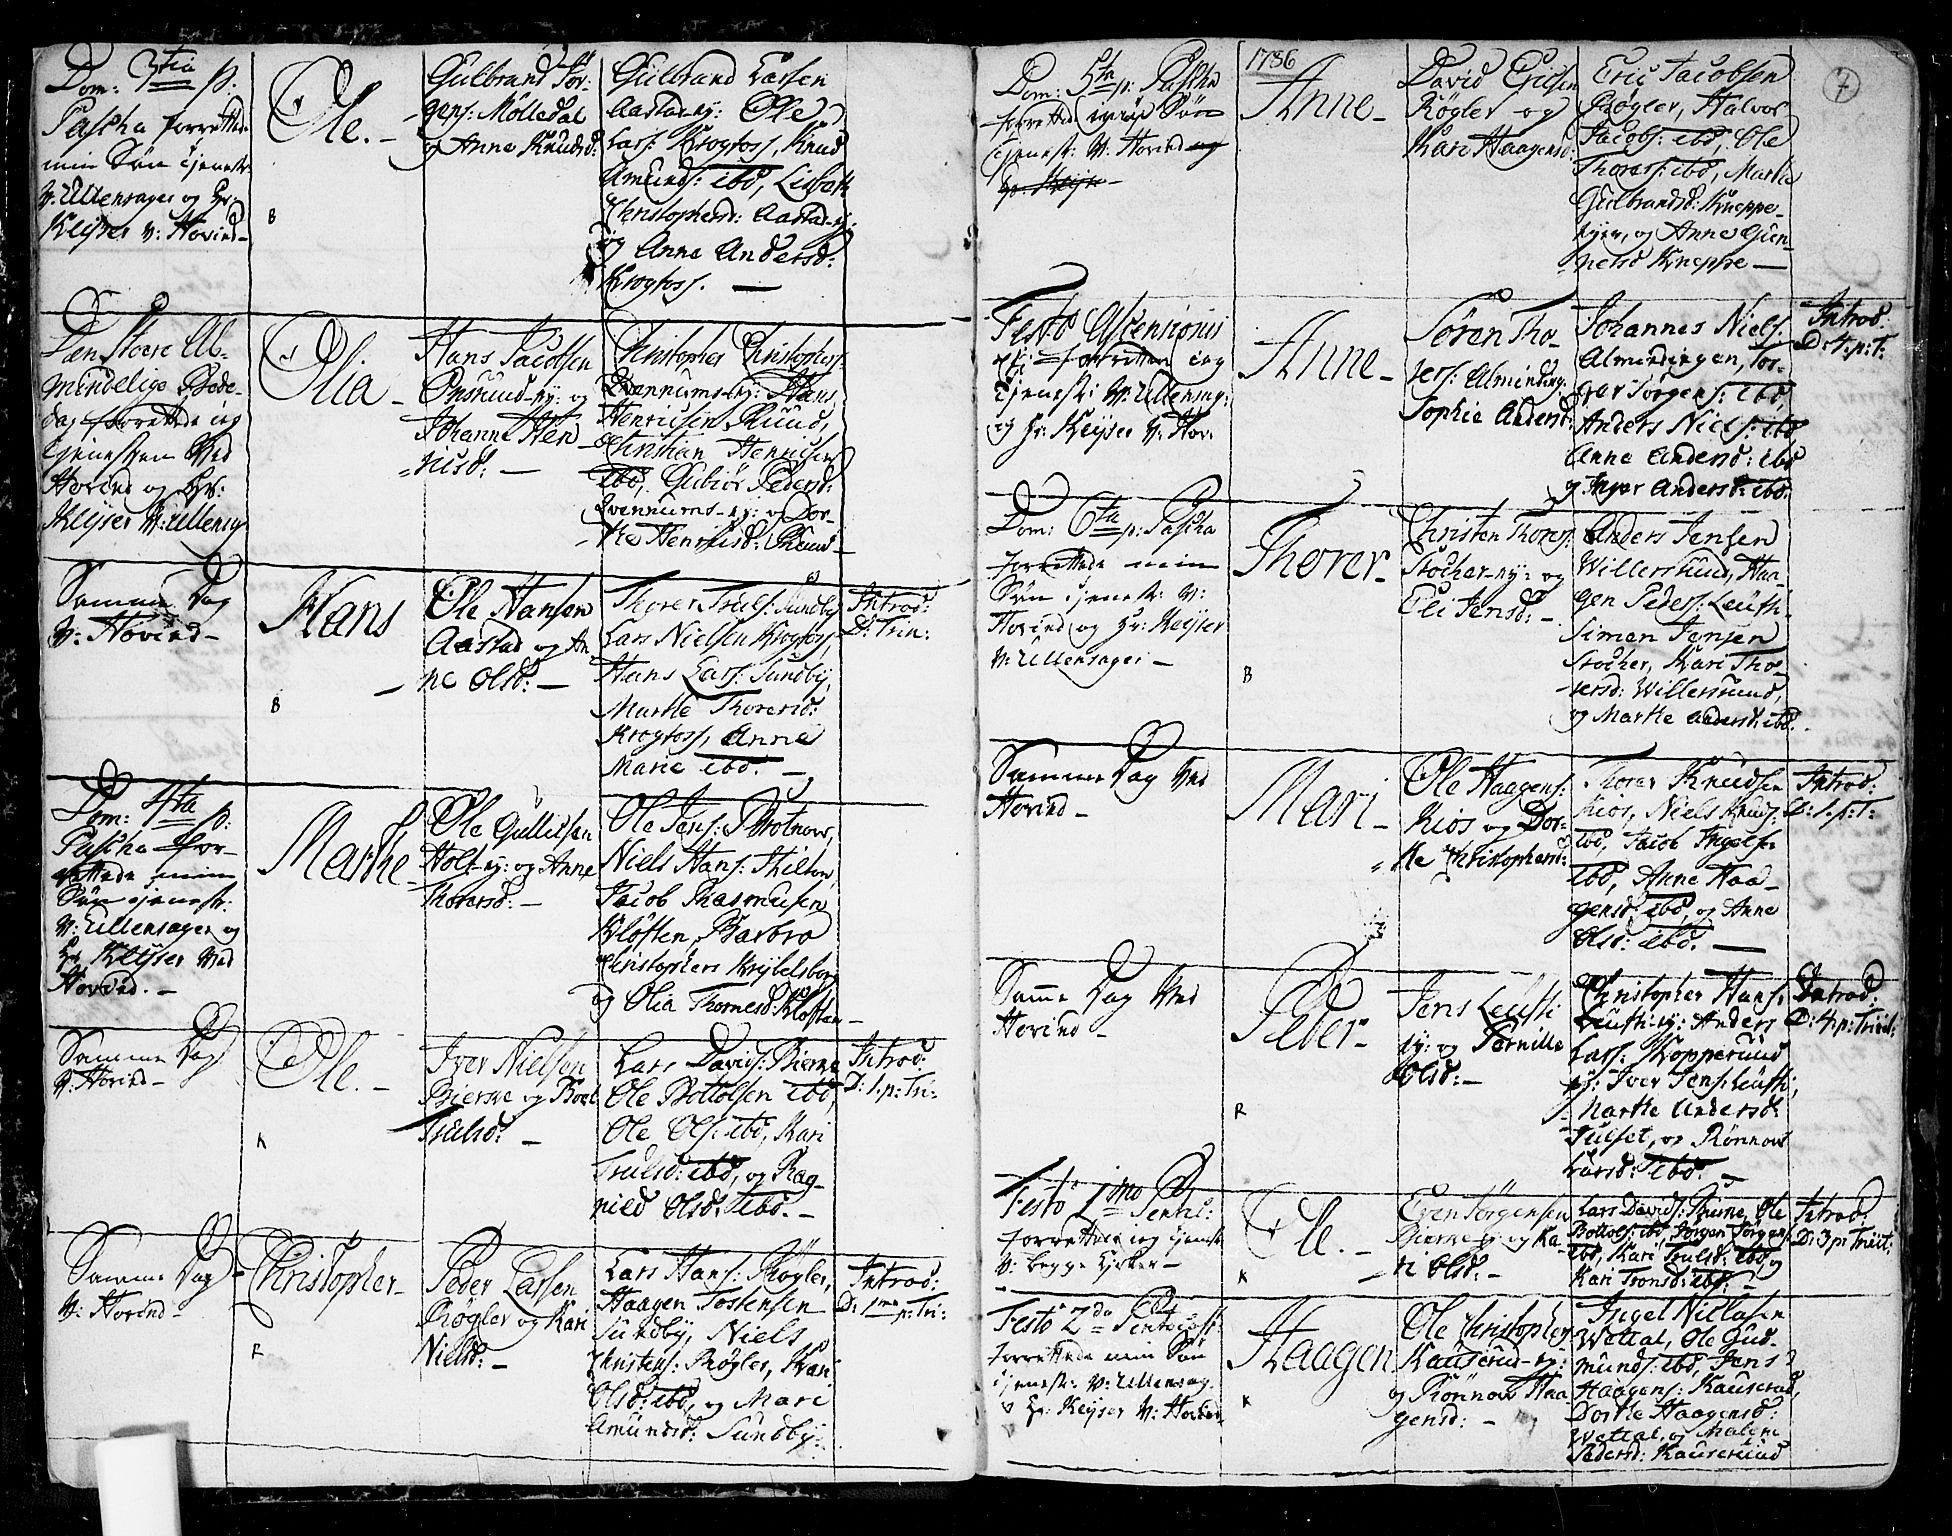 Dom: 3tia p:
Pascha forrettede
min Søn tjenest:
V: Ullensager og Hr:
Keyser V: Hovind –
Ole. –
B
Gulbrand Jør-
gens: Mølledal
og Anne Knudsd:
Gulbrand Larsen
Aastad-ey: Ole
Lars: Krogfoss, Knud
Amunds: ibd, Lisbeth
Christophersd: Aastad-ey:
og Anne Andersd:
Krogfoss. –
Den Store Al-
mindelige Bede-
dag forrettede ieg
tjenesten Ved
Hovind og Hr:
Keyser V: Ullensag:
Olia –
Hans Jacobsen
Onsrud-ey: og
Johanne Hen-
richsd: –
Christopher Christophers:
Qvennums-ey: Hans
Henrichsen Ruud,
Christian Henrichsen
ibd, Gubiør Pedersd:
Qvennums-ey: og Dor-
the Henrichsd: Ruud –
Samme Dag
V: Hovind –
Hans
B
Ole Hansen
Aastad og An-
ne Olsd: –
Thorer Truls: Sundby
Lars Nielsen Krogfoss,
Hans Lars: Sundby,
Marthe Thorersd:
Krogfoss, Anne
Marie ibd. –
Introd:
D: Trin:
Dom: 4ta p:
Pascha for-
rettede min
Søn tjenest:
V: Ullensager og
Hr Keyser Ved
Hovind. –
Marthe –
Ole Gullichsen
Holt-ey: og Anne
Thorersd: –
Ole Jens: Brotnov,
Niels Hans: Hilton,
Jacob Rasmusen
Kløften, Barbro
Christophers Krybelsborg
og Olia Thornesd: Kløften –
Samme Dag
V: Hovind –
Ole. –
K
Iver Nielsen
Bierke og Boel
Trulsd: –
Lars Davids: Bierke
Ole Bottolsen ibd,
Ole Ols: ibd, Kari
Trulsd: ibd, og Rag-
nild Olsd: ibd. –
Introd:
D: 1. p: Tri:
Samme Dag
V: Hovind –
Christopher –
R
Peder Larsen
Røgler og Kari
Nielsd: –
Lars Hans: Røgler,
Haagen Tostensen
Sundby, Niels
Christens: Røgler, Kari
Olsd: ibd, og Mari
Amundsd: Sundby:
Introd:
D: 1ma p: Tri:
1786
7
Dom: 5ta p: Pascha
forretted min Søn
tjenest: V: Hovind og
Hr: Keyser –
Anne –
David Erichsen
Røgler og
Kari Haagensd:
Eric Jacobsen
Røgler, Halvor
Jacobs: ibd, Ole
Thorers: ibd, Marthe
Gulbrandsd: Kneppe-
eyer, og Anne Gun-
nersd Kneppe –
Festo Ascensionis
forrettede ieg
tjenest: V: Ullensag:
og Hr: Keyser V: Hov:
Anne –
Søren Tho-
rers: Alminding:
Sophie Andersd:
Johannes Niels:
Almindingen, Jør-
gen Jørgens: ibd,
Anders Niels: ibd
Anne Andersd: ibd
og Inger Andersd: ibd.
Introd:
D: 4. p: T:
Dom: 6ta p: Pascha
forrettede min
Søn tjenest: V:
Hovind og Hr: Keyser
V: Ullensager –
Thorer –
B
Christen Thorers:
Stocher-ey: og
Eli Jensd: –
Anders Jensen
Willersrud, Haa-
gen Peders: Leufti-
Simen Jensen
Stocher, Kari Tho-
rersd: Willersrud,
og Marthe Andersd: ibd.
Samme Dag Ved
Hovind –
Mari –
Ole Haagens:
Kios og Dor-
the Christophersd:
Thorer Knudsen
Kios, Niels Knuds:
ibd, Jacob Ingels:
ibd, Anne Haa-
gensd: ibd, og Anne
Olsd: ibd. –
Introd:
D: 1. p: T:
Samme Dag Ved
Hovind –
Peder –
R
Jens Leufti-
ey: og Pernille
Olsd: –
Christopher Hans:
Leufti-ey: Anders
Lars: Kopperud
Iver Jens: Leufti,
Marthe Andersd:
Julset, og Rønnov
Larsd: ibd. –
Introd:
D: 4. p: Trinit:
Festo 1mo Pentec:
forrettede ieg tjenest:
V: begge Kirker –
Ole. –
K
Even Jørgensen
Bierke-ey og Ka-
ri Olsd: –
Lars Davids: Bierke, Ole
Bottols: ibd, Jørgen Jørgens:
ibd, Kari Trulsd: ibd, og
Kari Tronsd: ibd. –
Introd:
D: 3. p: Trinit:
Festo 2da Pentecost:
forrettede min Søn
tjenest: V: Ullensag.
og Hr: Keyser V: Hovind
Haagen
K
Ole Christopher
Kauserud-ey:
og Rønnov Haa-
gensd: –
Ingel Nielsen
Wettal, Ole Gud-
munds: ibd, Jens
Haagens: Kauserud,
Dorthe Haagensd:
Wettal, og Malene
Pedersd: Kauserud